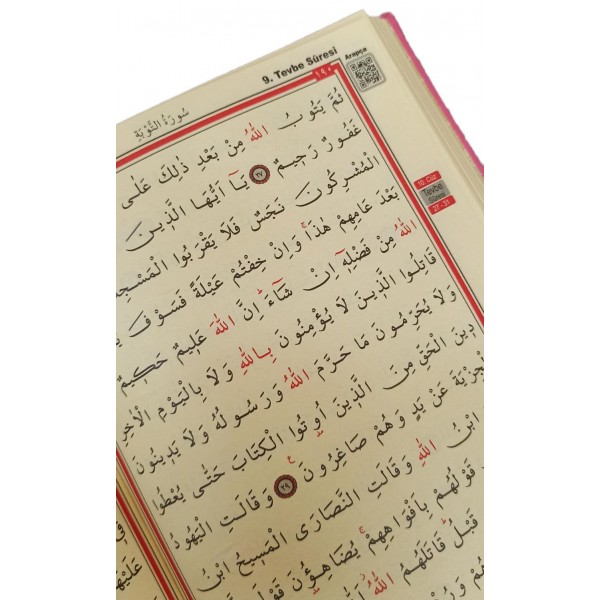 9. Tevbe Sûresi
Arapça
١٩٠
سُورَةُ التَّوْبَةِ
10. Cüz
Tevbe
Sûresi
27 - 31
ثُمَّ يَتُوبُ اللّٰهُ مِنْ بَعْدِ ذٰلِكَ عَلٰى
غَفُورٌ رَحٖيمٌ ٢٧ يَٓا اَيُّهَا الَّذٖينَ
الْمُشْرِكُونَ نَجَسٌ فَلَا يَقْرَبُوا الْمَسْجِدَ
بَعْدَ عَامِهِمْ هٰذَاۚ وَاِنْ خِفْتُمْ عَيْلَةً فَسَوْفَ
اللّٰهُ مِنْ فَضْلِهٖٓ اِنْ شَٓاءَۜ اِنَّ اللّٰهَ عَلٖيمٌ حَكٖيمٌ
قَاتِلُوا الَّذٖينَ لَا يُؤْمِنُونَ بِاللّٰهِ وَلَا بِالْيَوْمِ الْاٰخِرِ
وَلَا يُحَرِّمُونَ مَا حَرَّمَ اللّٰهُ وَرَسُولُهُ وَلَا يَدٖينُونَ
دٖينَ الْحَقِّ مِنَ الَّذٖينَ اُو۫تُوا الْكِتَابَ حَتّٰى يُعْطُوا
الْجِزْيَةَ عَنْ يَدٍ وَهُمْ صَاغِرُونَ ٢٩ وَقَالَتِ الْيَهُودُ
ابْنُ اللّٰهِ وَقَالَتِ النَّصَارَى الْمَسٖيحُ ابْنُ
قَوْلُهُمْ بِاَفْوَاهِهِمْۚ يُضَاهِؤُ۫نَ قَوْلَ
قَبْلُۜ قَاتَلَهُمُ اللّٰهُۘ